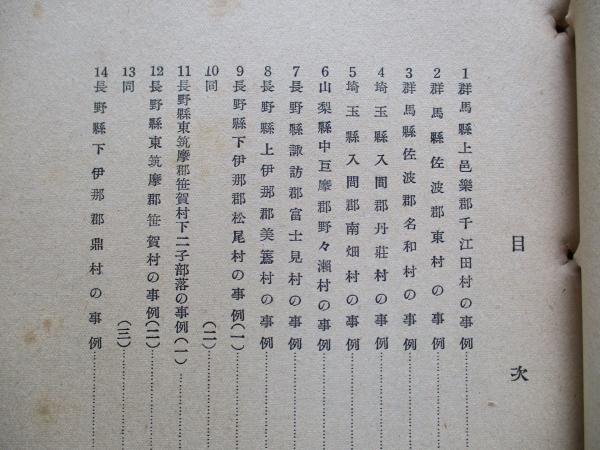 目次
1 群馬縣上邑樂郡千江田村の事例
2 群馬縣佐波郡東村の事例
3 群馬縣佐波郡名和村の事例
4 埼玉縣入間郡丹莊村の事例
5 埼玉縣入間郡南畑村の事例
6 山梨縣中巨摩郡野々瀬村の事例
7 長野縣諏訪郡富士見村の事例
8 長野縣上伊那郡美篶村の事例
9 長野縣下伊那郡松尾村の事例(一)
10 同 (二)
11 長野縣東筑摩郡笹賀村下二子部落の事例(一)
12 長野縣東筑摩郡笹賀村の事例(二)
13 同 (三)
14 長野縣下伊那郡鼎村の事例